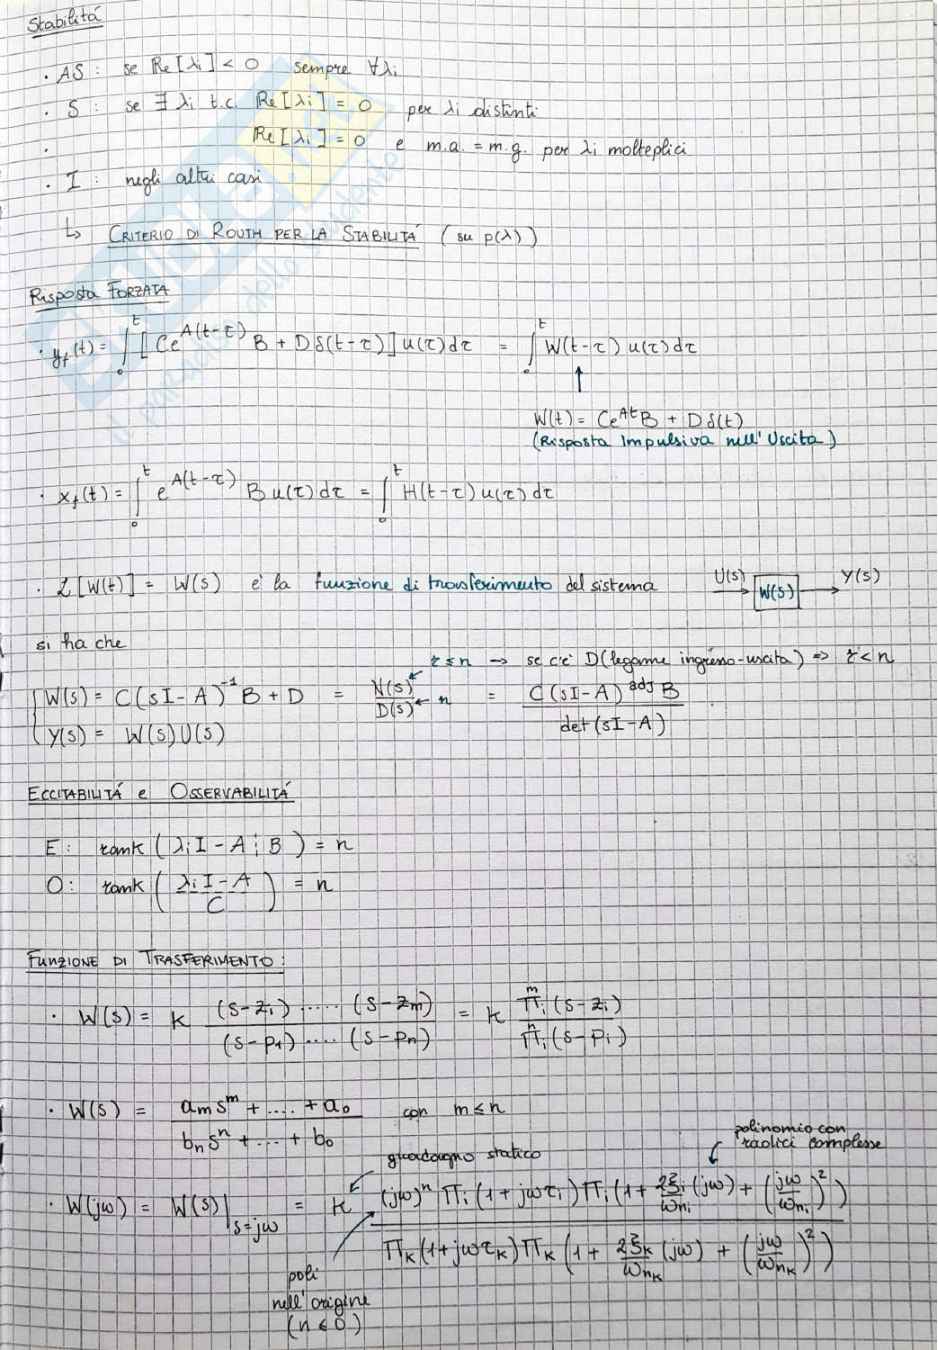 Stabilitá
· AS : se Re[λi] < 0 sempre ∀λi
· S : se ∃ λi t.c. Re[λi] = 0 per λi distinti
· Re[λi] = 0 e m.a. = m.g. per λi molteplici
· I : negli altri casi
↳ CRITERIO DI ROUTH PER LA STABILITÁ (su p(λ))
Risposta FORZATA
· yf(t) = ∫₀ᵗ [Ce^A(t-τ) B + Dδ(t-τ)] u(τ)dτ = ∫₀ᵗ W(t-τ) u(τ)dτ
↑
W(t) = Ce^At B + Dδ(t)
(Risposta Impulsiva nell'Uscita)
· xf(t) = ∫₀ᵗ e^A(t-τ) B u(τ)dτ = ∫₀ᵗ H(t-τ) u(τ)dτ
· L[W(t)] = W(s) e' la funzione di trasferimento del sistema U(s) → W(s) → Y(s)
si ha che
r ≤ n → se c'e' D (legame ingresso-uscita) ⇒ r < n
{ W(s) = C(sI-A)⁻¹B + D = N(s)/D(s) ← n = C(sI-A)^adj B / det(sI-A)
Y(s) = W(s)U(s)
ECCITABILITÁ e OSSERVABILITÁ
E: rank (λiI - A ¦ B) = n
O: rank (λiI-A / C) = n
FUNZIONE DI TRASFERIMENTO:
· W(s) = K (s-zi) .... (s-zm) / (s-p1) .... (s-pn) = K ∏i^m (s-zi) / ∏i^n (s-pi)
· W(s) = am s^m + .... + a0 / bn s^n + ... + b0 con m ≤ n
polinomio con
radici complesse
guadagno statico
· W(jω) = W(s)|s=jω = K (jω)^n ∏i (1+jωτi) ∏i (1 + 2ξi/ωni (jω) + (jω/ωni)²) / ∏K (1+jωτK) ∏K (1 + 2ξK/ωnK (jω) + (jω/ωnK)²)
poli
nell'origine
(n ≤ 0)